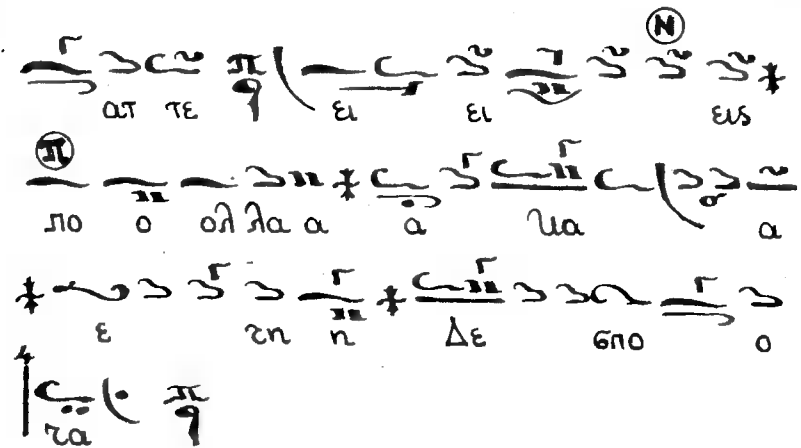 Ν
ατ τε ει ει εις
Π
πο ο ολ λα α α α
ε τη η Δε σπο ο
τα